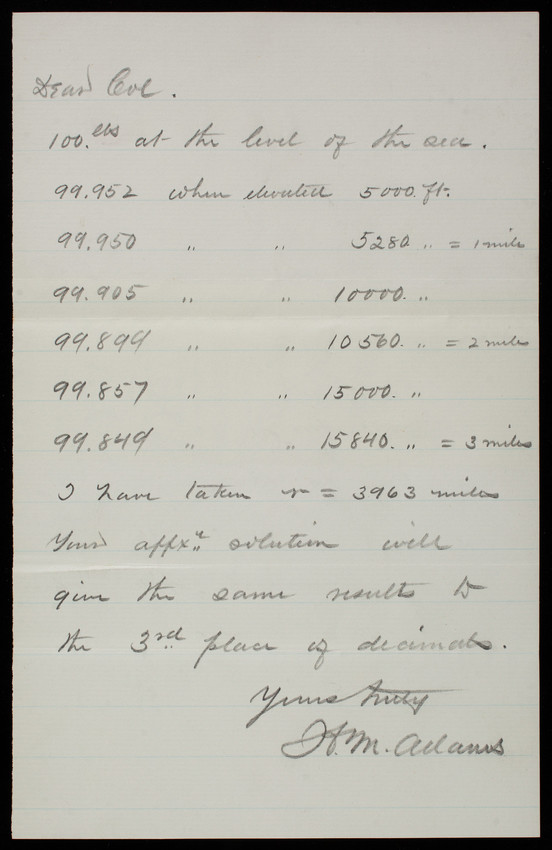 Dear Col.
100.lbs at the level of the sea.
99.952 when elevated 5000.ft.
99.950 " " 5280 " = 1 mile
99.905 " " 10000. "
99.899 " " 10560. " = 2 miles
99.857 " " 15000. "
99.849 " " 15840. " = 3 miles
I have taken r = 3963 miles
Your appxt. solution will
give the same results to
the 3rd place of decimals.
Yours truly
H.M. Adams